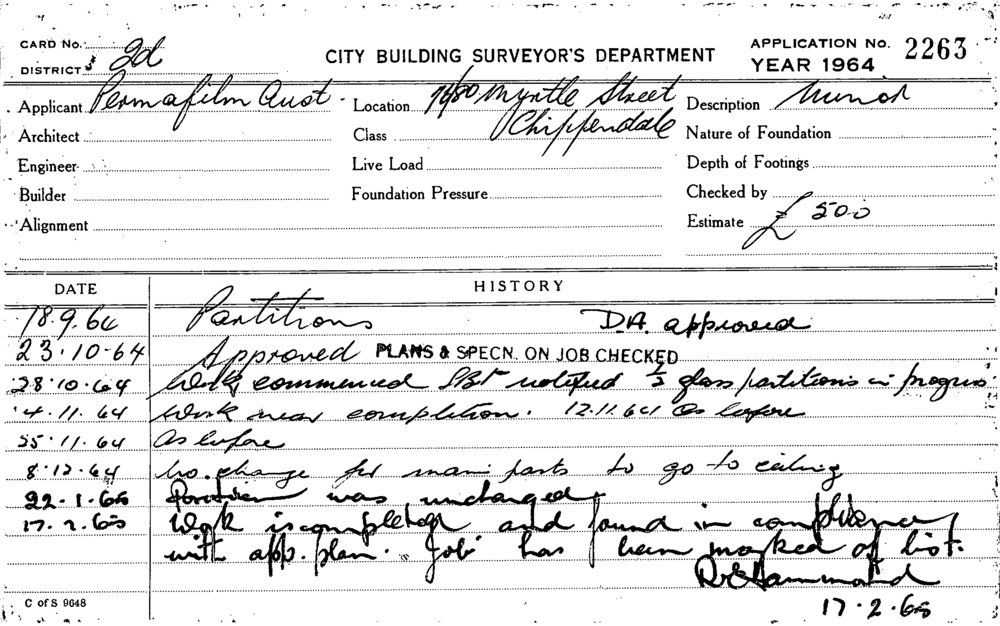 CARD No.
DISTRICT 2d
CITY BUILDING SURVEYOR'S DEPARTMENT
APPLICATION No. 2263
YEAR 1964
Applicant Permafilm Aust. Location 76/80 Myrtle Street Description Minor
Architect Class Chippendale Nature of Foundation
Engineer Live Load Depth of Footings
Builder Foundation Pressure Checked by
Alignment Estimate £ 500
DATE HISTORY
18.9.64 Partitions D.A. approved
23.10.64 Approved PLANS & SPECN. ON JOB CHECKED
28.10.64 Work commenced notified ½ glass partitions in progress.
4.11.64 Work near completion. 12.11.64 As before
25.11.64 As before
8.12.64 No change for main parts to go to ceiling
22.1.65 Position was unchanged.
17.2.65 Work is completed and found in compliance
with app. plan. Job has been marked of list.
R Hammond
17.2.65
C of S 9648